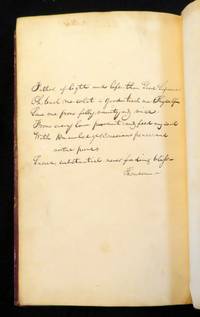 Father of light and life thou Good Supreme
Oh teach me what is good teach me Thyself
Save me from folly vanity and vice
From every low pursuit and feed my soul
With Knowledge Conscious peace and
virtue pure
Sacred substantial never fading bliss
Thomson